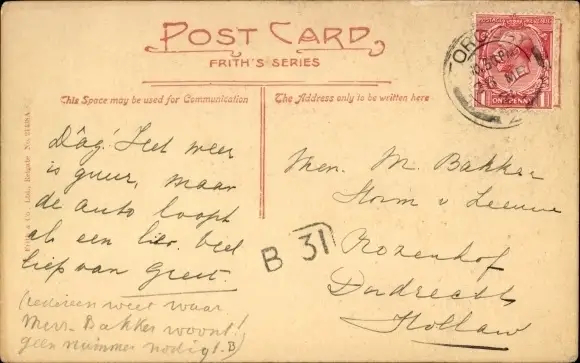 POST CARD
FRITH'S SERIES
This Space may be used for Communication
The Address only to be written here
Dàg! Het weer
is guur, maar
de auto loopt
als een lier. Veel
liefs van Greet.
(iedereen weet waar
Mevr. Bakker woont!
geen nummer nodig! B)
Mevr. M. Bakker
Storm v Leeuwen
Rozenhof
Dordrecht
Holland
B 31
ONE PENNY